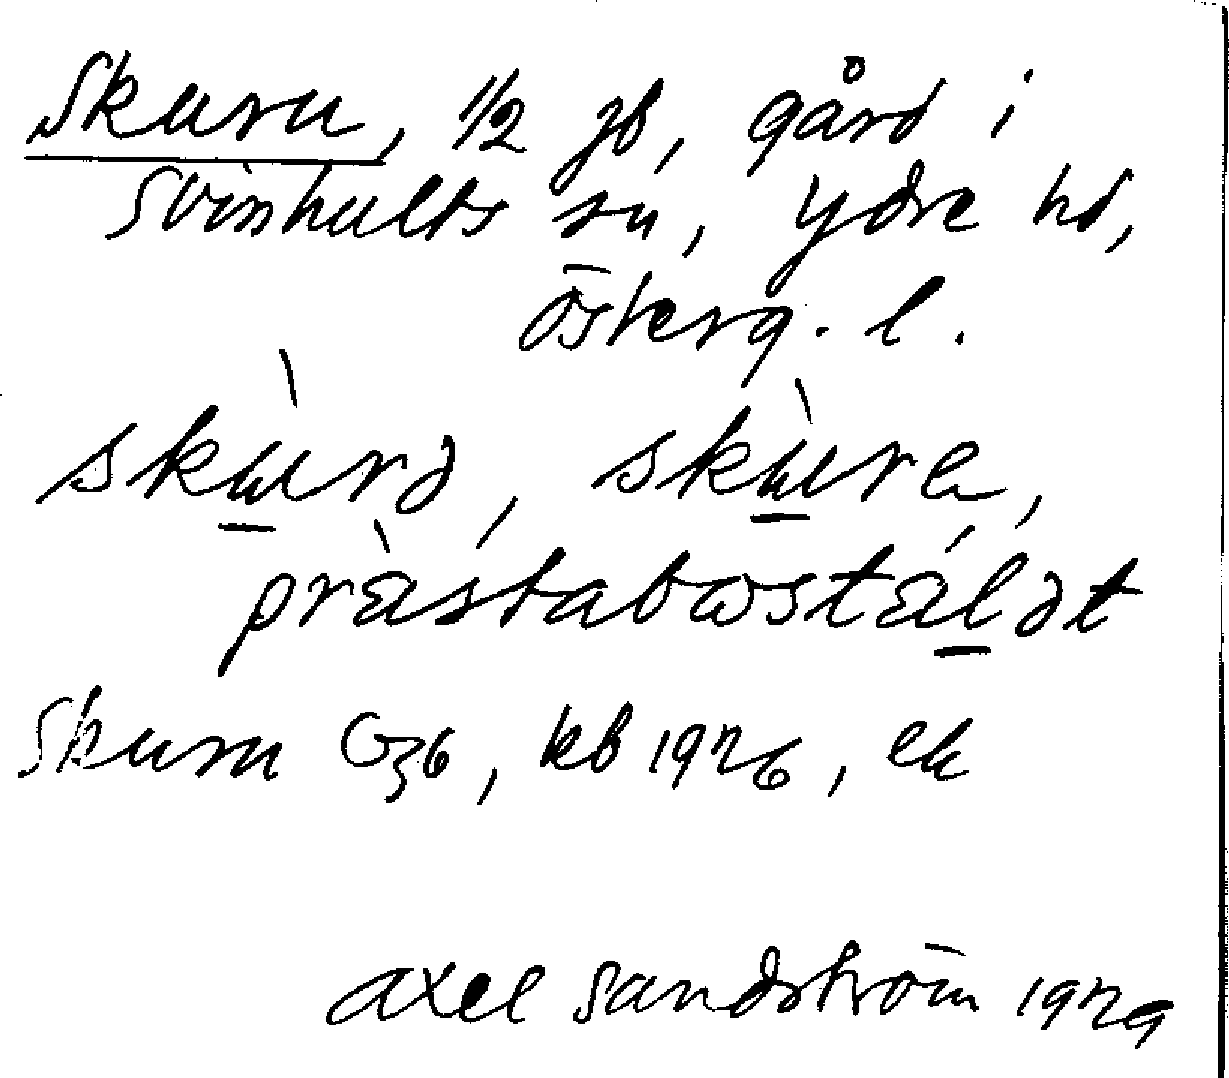 Skuru, 1/2 jb, gård i
Svinhults sn, Ydre hd,
Österg. l.
skùrə, skùre,
prästabostälət
Skuru G36, kb 1926, ek
Axel Sandström 1929